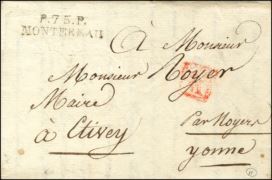 P.75.P.
MONTEREAU
À Monsieur
Monsieur Royer
Maire
à Etivey
Par Noyers
yonne